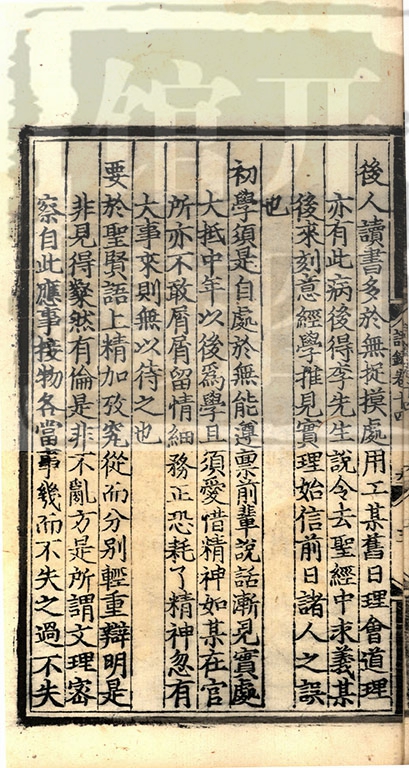 後人讀書多於無捉摸處用工某舊日理會道理
亦有此病後得李先生說令去聖經中求義某
後來刻意經學推見實理始信前日諸人之誤
也
初學須是自處於無能遵稟前輩說話漸見實處
大抵中年以後爲學且須愛惜精神如某在官
所亦不敢屑屑留情細務正恐耗了精神忽有
大事來則無以待之也
要於聖賢語上精加攷究從而分別輕重辯明是
非見得粲然有倫是非不亂方是所謂文理密
察自此應事接物各當事幾而不失之過不失